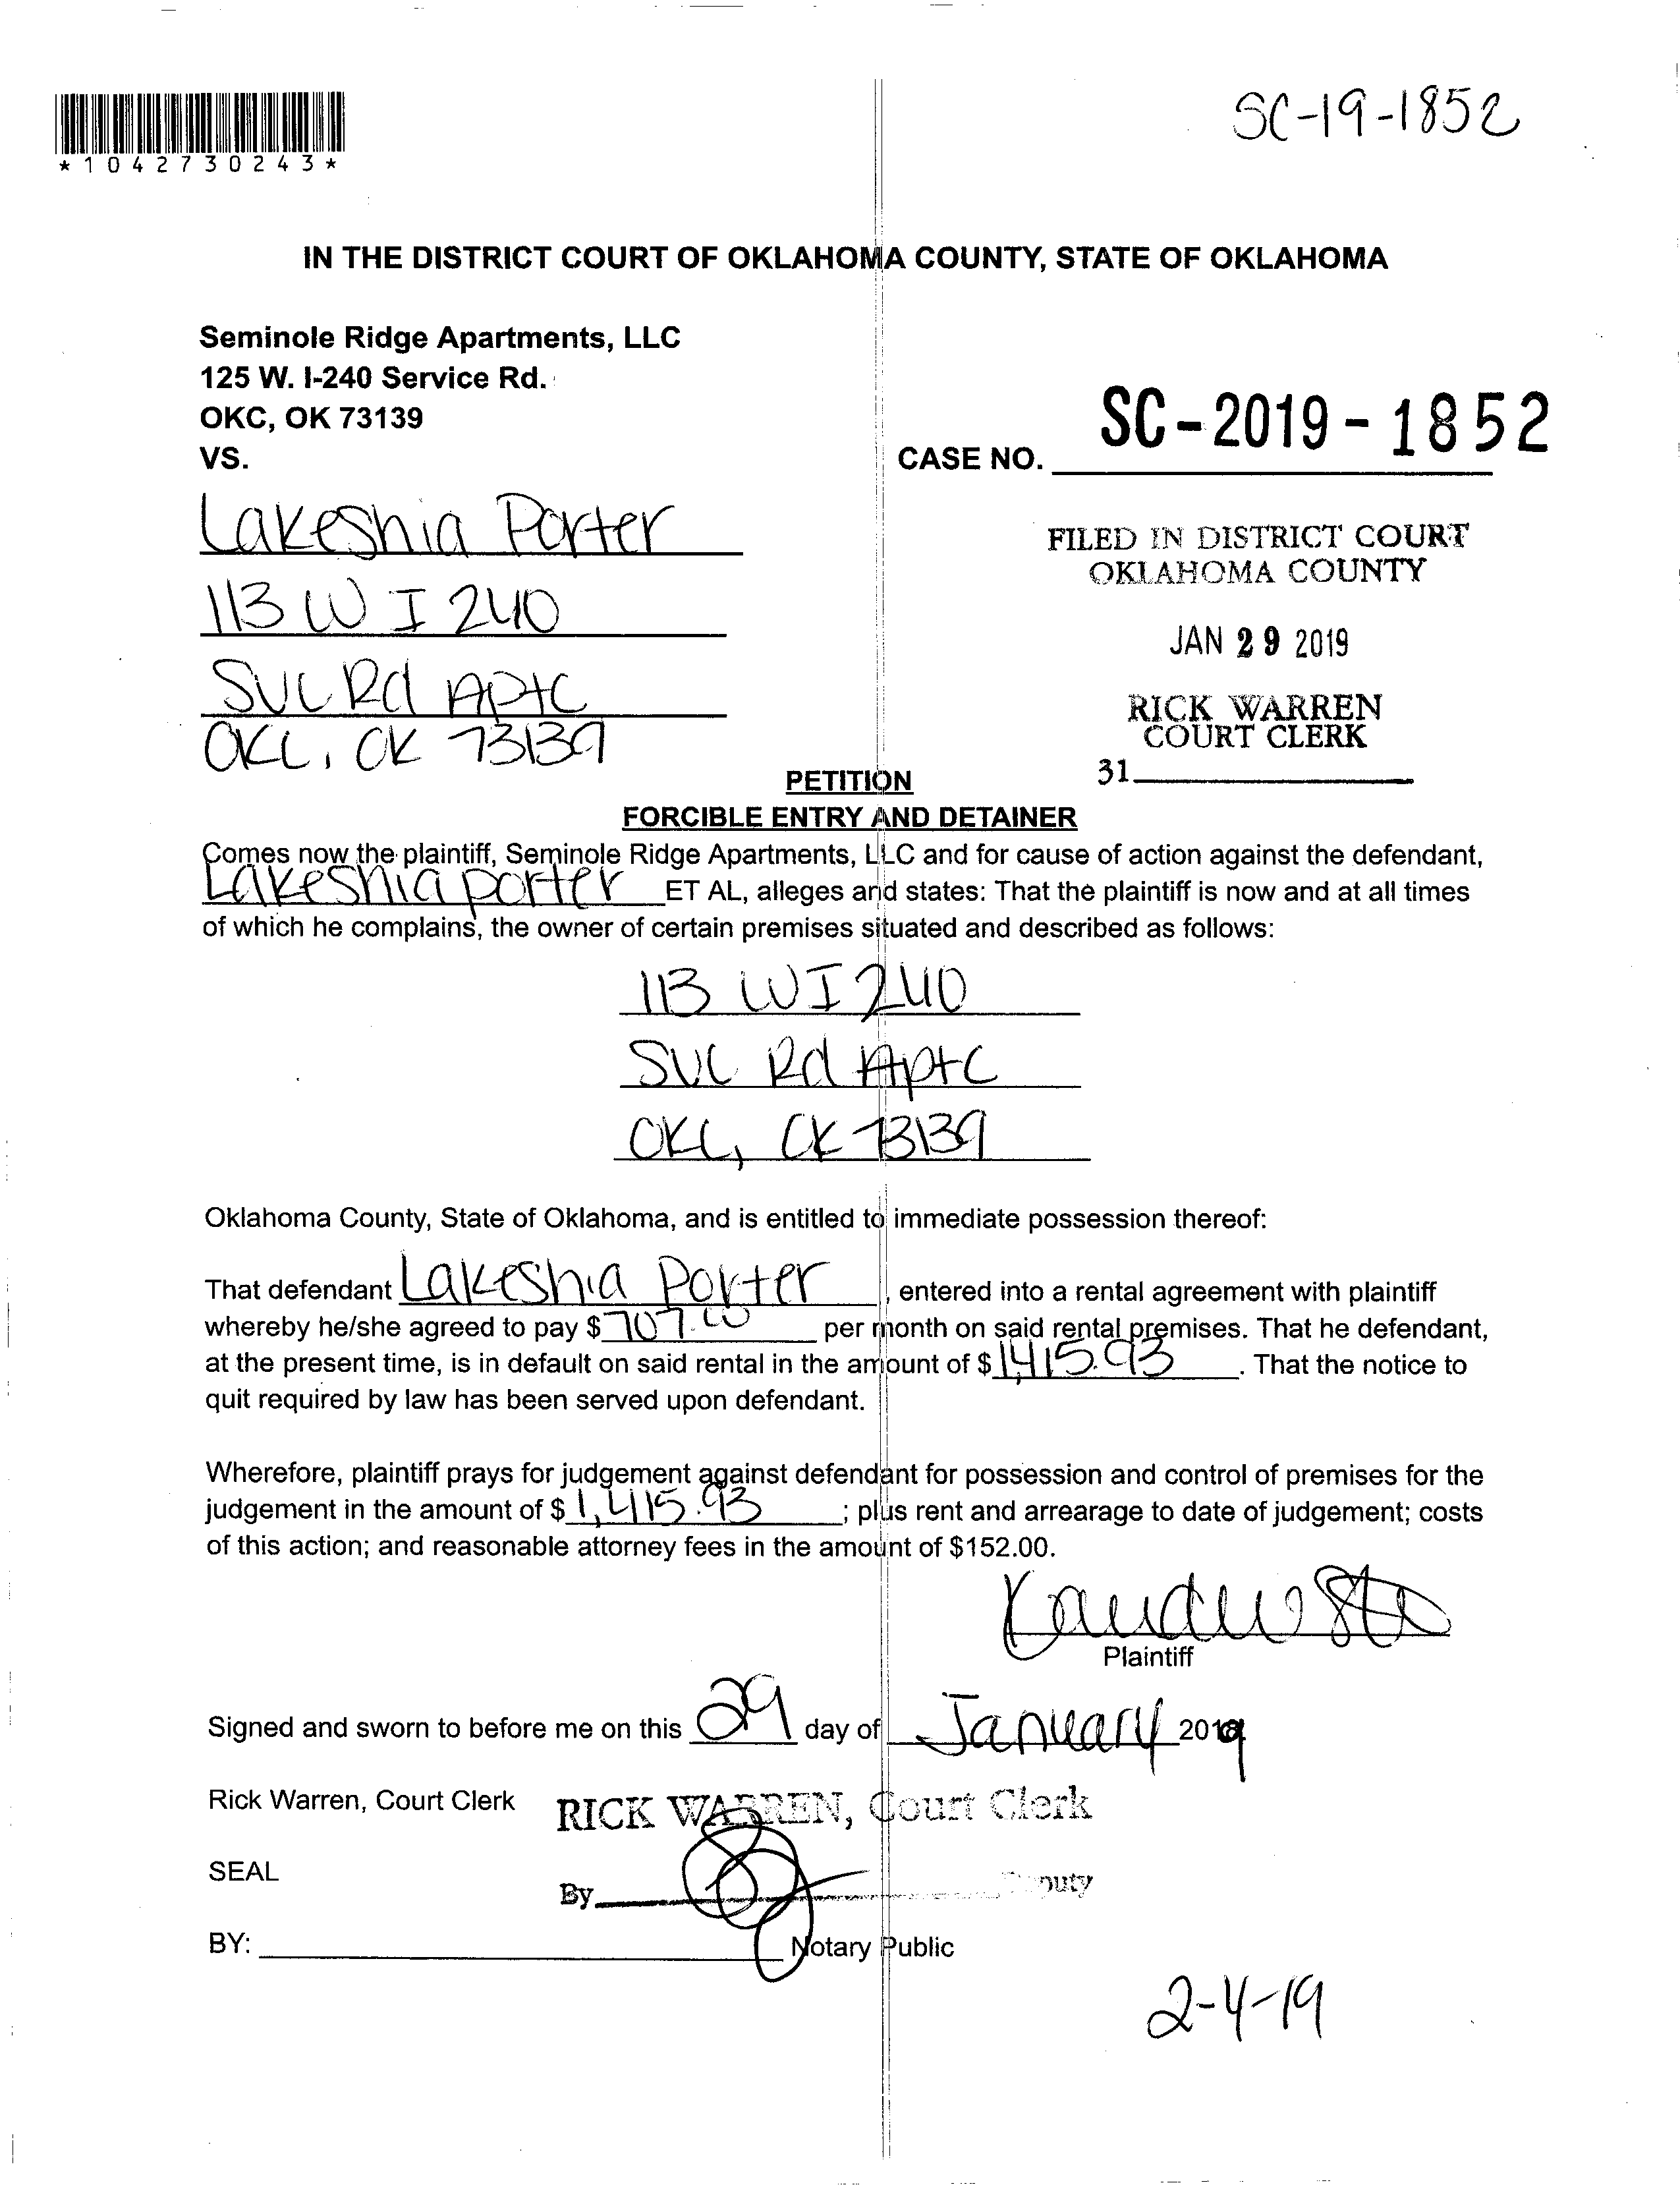 *1042730243*
SC-19-1852
IN THE DISTRICT COURT OF OKLAHOMA COUNTY, STATE OF OKLAHOMA
Seminole Ridge Apartments, LLC
125 W. I-240 Service Rd.
OKC, OK 73139
VS.
CASE NO. SC-2019-1852
Lakeshia Porter
113 W I 240
SVC Rd Apt C
OKC, OK 73139
FILED IN DISTRICT COURT
OKLAHOMA COUNTY
JAN 29 2019
RICK WARREN
COURT CLERK
31
PETITION
FORCIBLE ENTRY AND DETAINER
Comes now the plaintiff, Seminole Ridge Apartments, LLC and for cause of action against the defendant,
Lakeshia Porter ET AL, alleges and states: That the plaintiff is now and at all times
of which he complains, the owner of certain premises situated and described as follows:
113 W I 240
SVC Rd Apt C
OKC, OK 73139
Oklahoma County, State of Oklahoma, and is entitled to immediate possession thereof:
That defendant Lakeshia Porter, entered into a rental agreement with plaintiff
whereby he/she agreed to pay $ 707.00 per month on said rental premises. That he defendant,
at the present time, is in default on said rental in the amount of $ 1,415.93. That the notice to
quit required by law has been served upon defendant.
Wherefore, plaintiff prays for judgement against defendant for possession and control of premises for the
judgement in the amount of $ 1,415.93; plus rent and arrearage to date of judgement; costs
of this action; and reasonable attorney fees in the amount of $152.00.
Plaintiff
Signed and sworn to before me on this 29 day of January 2019
Rick Warren, Court Clerk RICK WARREN, Court Clerk
SEAL
By Deputy
BY: Notary Public
2-4-19